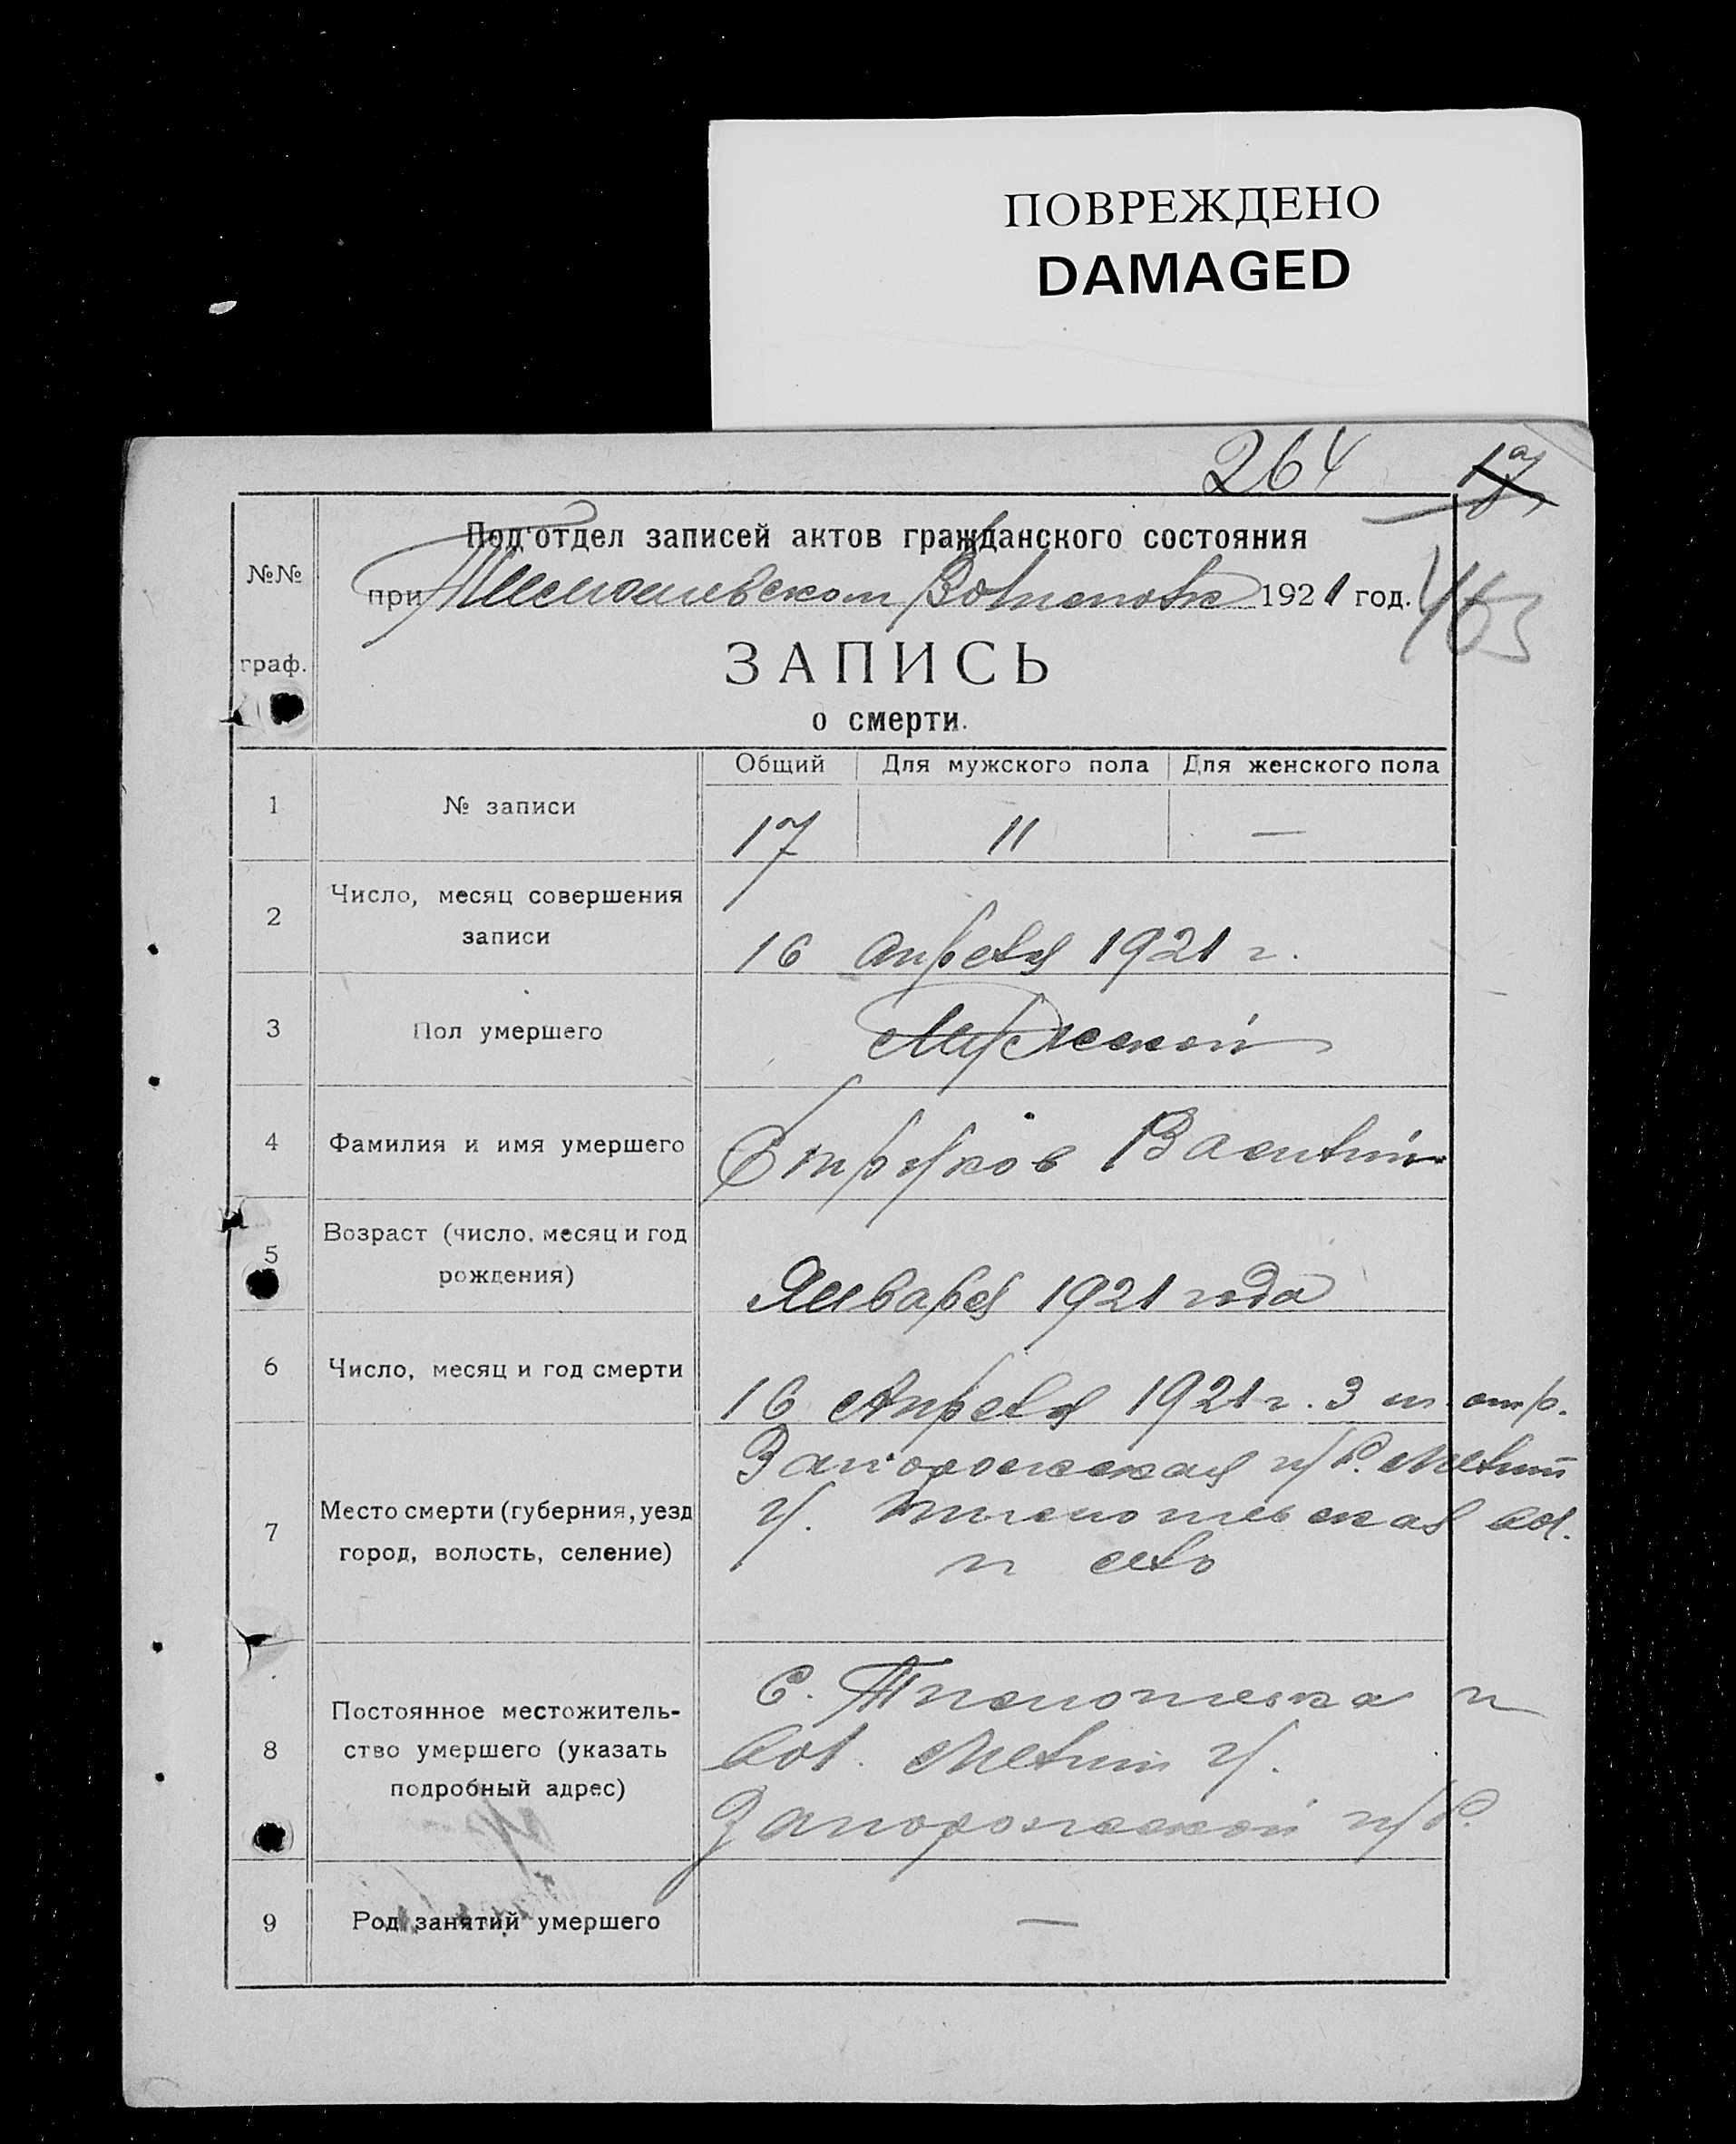 ПОВРЕЖДЕНО
DAMAGED
264
17
Под'отдел записей актов гражданского состояния
№№
при Тимошевском Волисполк 1921 год.
463
граф.
ЗАПИСЬ
о смерти.
Общий Для мужского пола Для женского пола
1 № записи 17 11 —
2 Число, месяц совершения
записи
16 Апреля 1921 г.
3 Пол умершего Мужской
4 Фамилия и имя умершего Струков Василий
5 Возраст (число, месяц и год
рождения)
Января 1921 года
6 Число, месяц и год смерти
16 Апреля 1921 г. 3
Запорожская губ. Мелит
7 Место смерти (губерния, уезд
город, волость, селение)
у. вол.
и село
8 Постоянное местожитель-
ство умершего (указать
подробный адрес)
С. и
вол. Мелит у.
Запорожской губ.
9 Род занятий умершего —